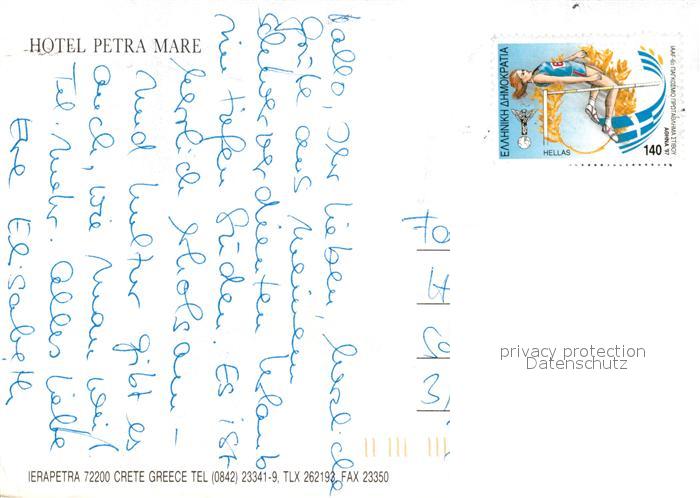 HOTEL PETRA MARE
Hallo, Ihr Lieben, herzliche
Grüße aus meinem
wohlverdienten Urlaub
im tiefen Süden. Es ist
herrlich erholsam -
und Kultur gibt es
auch, wie man weiß!
Tel. mehr. Alles Liebe
Eure Elisabeth
IERAPETRA 72200 CRETE GREECE TEL (0842) 23341-9, TLX 262193, FAX 23350
ΕΛΛΗΝΙΚΗ ΔΗΜΟΚΡΑΤΙΑ
HELLAS
140
IAAF-6ο ΠΑΓΚΟΣΜΙΟ ΠΡΩΤΑΘΛΗΜΑ ΣΤΙΒΟΥ
ΑΘΗΝΑ '97
privacy protection
Datenschutz